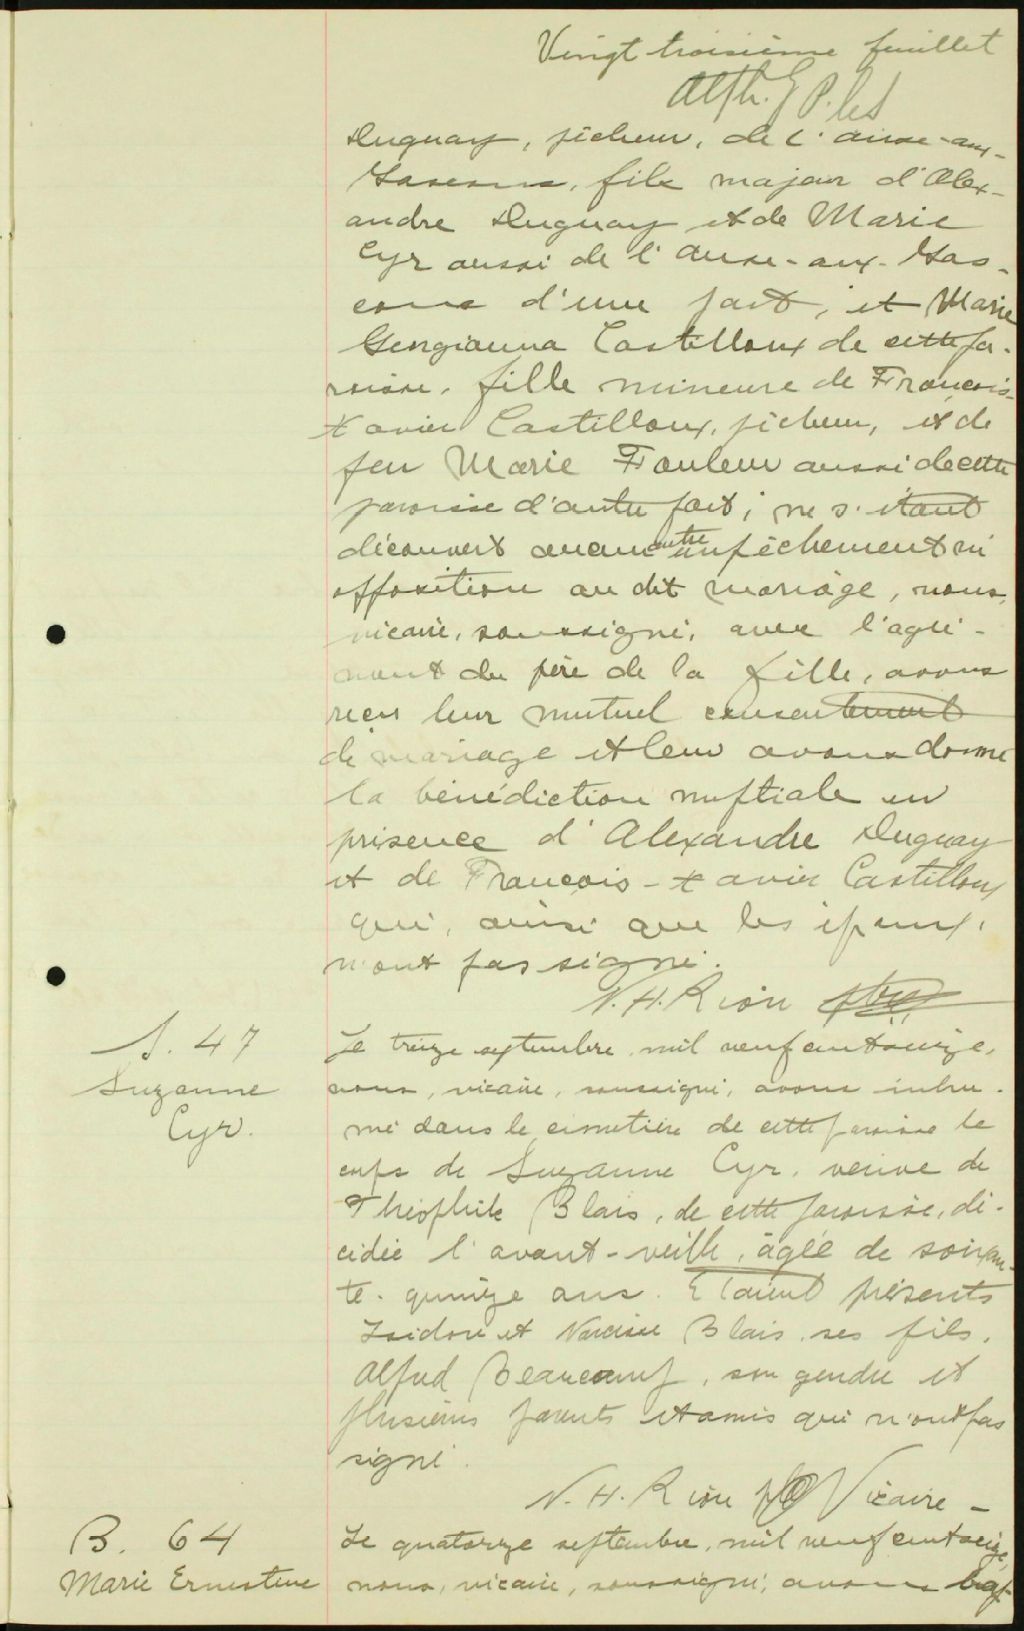 Vingt troisième feuillet
Alph.
Duguay, pêcheur, de l'anse-aux-
Gascons, fils majeur d'Alex-
andre Duguay et de Marie
Cyr aussi de l'anse-aux-Gas-
cons d'une part, et Marie
Georgianna Castilloux de cette pa-
roisse, fille mineure de François-
Xavier Castilloux, pêcheur, et de
feu Marie Fouleur aussi de cette
paroisse d'autre part; ne s'étant
découvert aucun autre empêchement ni
opposition au dit mariage, nous,
vicaire, soussigné, avec l'agré-
ment du père de la fille, avons
reçu leur mutuel consentement
de mariage et leur avons donné
la bénédiction nuptiale en
présence d'Alexandre Duguay
et de François-Xavier Castilloux
qui, ainsi que les époux,
n'ont pas signé.
N. H. Rioux ptre
S. 47
Suzanne
Cyr.
Le treize septembre, mil neuf cent seize,
nous, vicaire, soussigné, avons inhu-
mé dans le cimetière de cette paroisse le
corps de Suzanne Cyr, veuve de
Théophile Blais, de cette paroisse, dé-
cédée l'avant-veille, âgée de soixan-
te-quinze ans. Etaient présents
Isidore et Narcisse Blais, ses fils,
Alfred Beaucamp, son gendre et
plusieurs parents et amis qui n'ont pas
signé.
N. H. Rioux Vicaire -
B. 64
Marie Ernestine
Le quatorze septembre, mil neuf cent seize,
nous, vicaire, soussigné, avons bap-